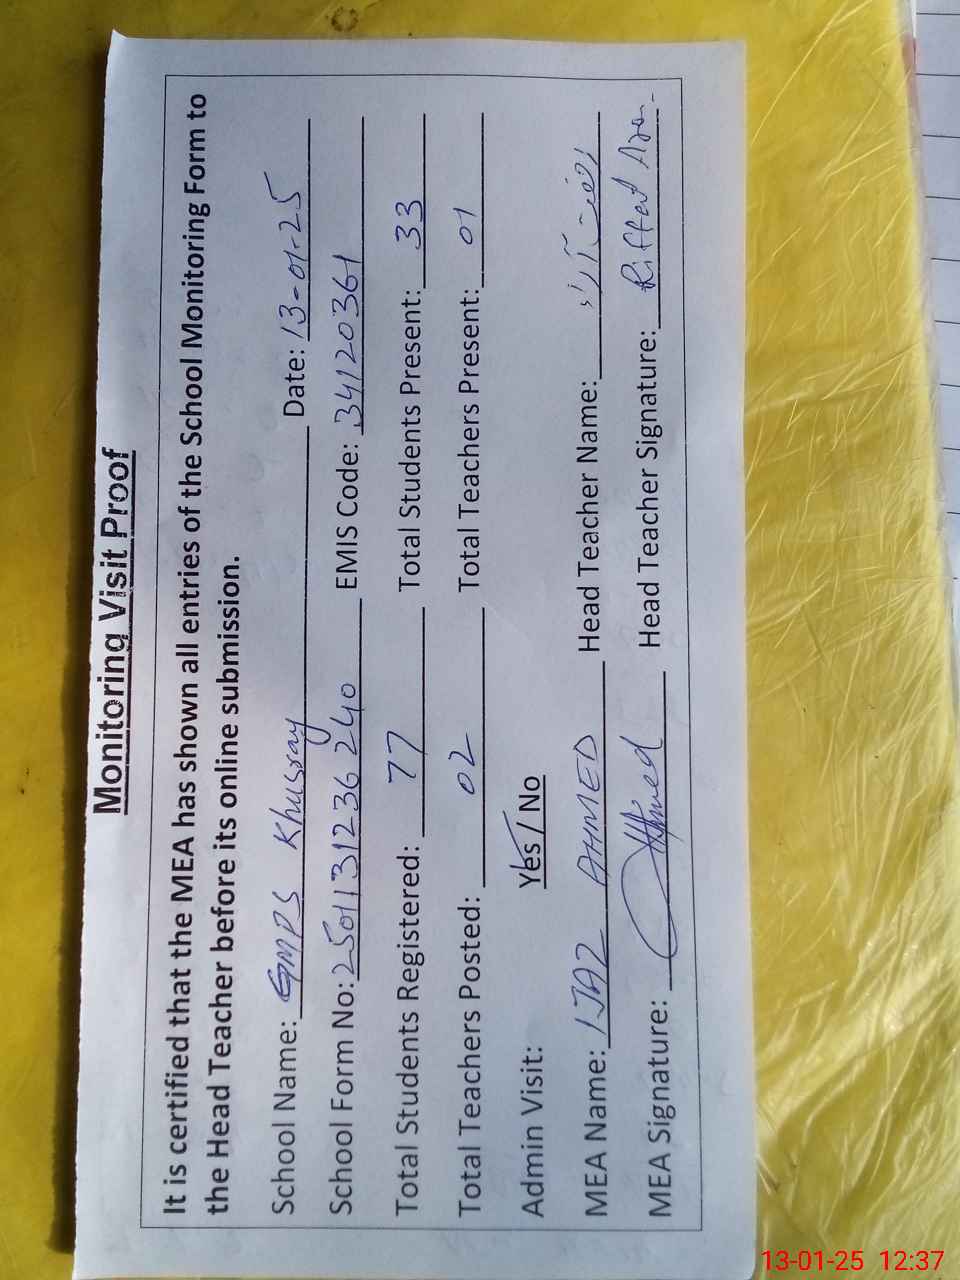 Monitoring Visit Proof
It is certified that the MEA has shown all entries of the School Monitoring Form to
the Head Teacher before its online submission.
School Name: GMPS Khusray Date: 13-01-25
School Form No: 2501131236240 EMIS Code: 34120361
Total Students Registered: 77 Total Students Present: 33
Total Teachers Posted: 02 Total Teachers Present: 01
Admin Visit: Yes / No
MEA Name: IJAZ AHMED Head Teacher Name:
MEA Signature: Ahmed Head Teacher Signature: Riffat
13-01-25 12:37